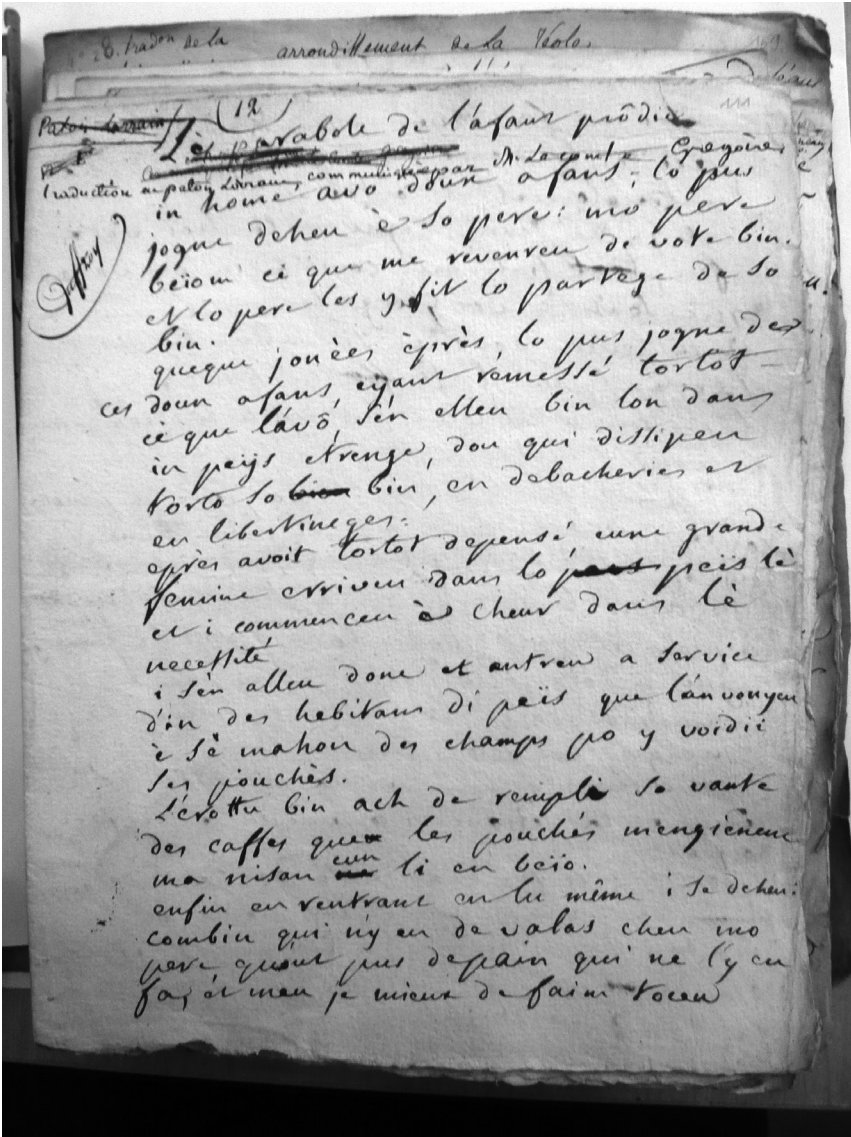 arrondissement de la Réole
169
12
111
Patois Lorrain
Lè parabole de l'afant prôdic
traduction en patois Lorrain, communiquée par M. Le comte Gregoire
Jauffroy
in home avo doun afans; lo pus
jogne deheu è so pere: mo pere
beïom cè que me revenreu de vote bin.
et lo pere les y fit lo partege de so
bin.
queque jonèes èprès, lo pus jogne de
ces doun afans, eyant remessé tortot
cè que l'avô, s'én elleu bin lon dans
in peÿs etrenge, dou qui dissipeu
torto so bin, en debacheries et
en libertineges.
eprès avoit tortot depensé, eune grande
femine erriveu dans lo peïs lè
et i commenceu è cheur dans lè
necessité
i s'én alleu donc et entreu a service
d'in des hebitans di peïs que l'anvonyeu
è sè mahon des champs po y voidii
ses pouchès.
L'érottu bin ach de rempli so vante
des caffes que les pouchés mengiéneu
ma nisan eun li en beïo.
enfin en rentrant en lu même i se deheu:
combin qui n'y en de valas cheu mo
pere qu'ont pus de pain qui ne l'y en
fa, et meu je mieux de faim toceu